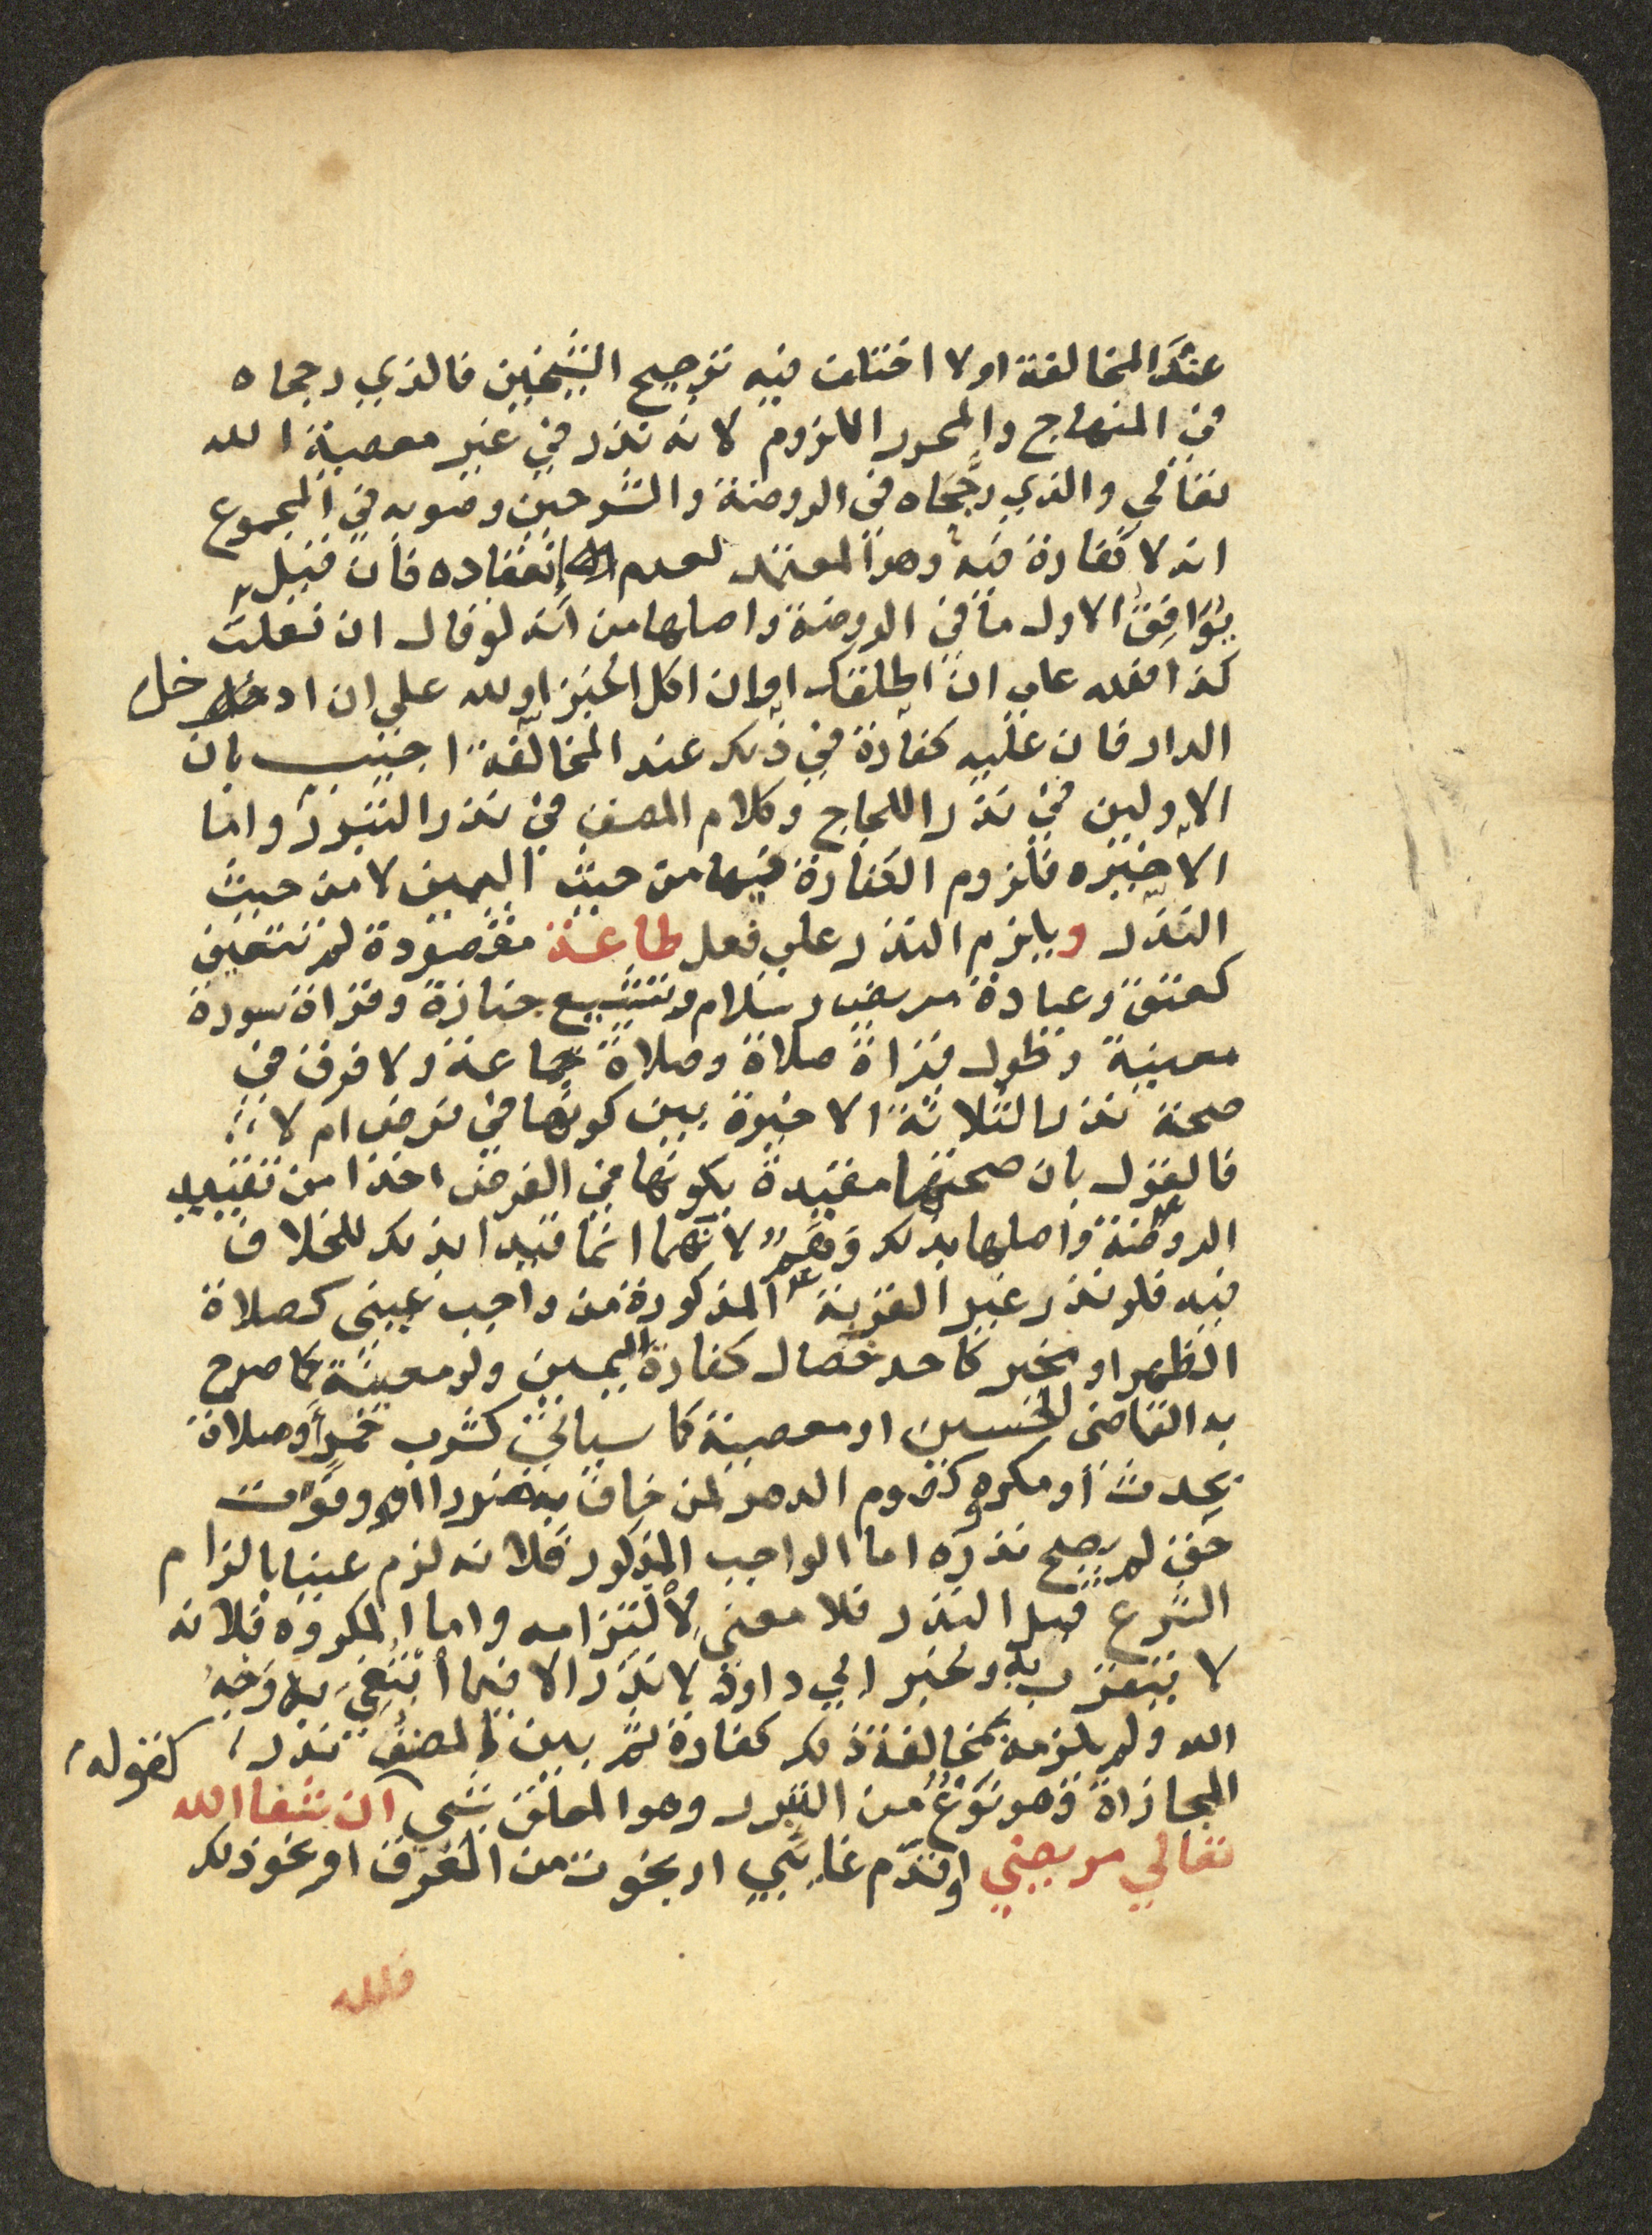 عند المخالفة اولا اختلف فيه ترجيح الشيخين فالذي رجحاه
في المنهاج والمحرر اللزوم لانه نذر في غير معصية الله
تعالي والذي رجَّحَاه في الروضة والشرحين وصوبه في المجموع
انه لا كفارة فيه وهو المعتمد لعدم انعقاده فان قيل
يُوَافِقُ الاول ما في الروضة واصلها من انه لو قال ان فعلت
كذا فلله علي ان اطلقك او ان اكل الخبز او لله علي ان ادخل
الدار فان عليه كفارة في ذلك عند المخالفة اجيب بان
الاولين في نذر اللجاج وكلام المصنف في نذر التبرر واما
الاخيره فلزوم الكفارة فيها من حيث اليمين لا من حيث
النذر ويلزم النذر علي فعل طاعة مقصودة لم تتعين
كعتق وعيادة مريض وسلام وتشييع جنازة وقراة سورة
معينة وطول قراة صلاة وصلاة جماعة ولا فرق في
صحة نذر الثلاثة الاخيرة بين كونها في فرض ام لا
فالقول بان صحتها مقيدة بكونها في الفرض اخذا من تقييد
الروضة واصلها بذلك وَهَمٌ لانهما انما قيدا بذلك للخلاف
فيه فلو نذر غير القربة المذكورة من واجب عيني كصلاة
الظهر او مخير كاحد خصال كفارة اليمين ولو معينة كما صرح
به القاضي الحسين او معصية كما سياتي كشرب خمر او صلاة
بحدث او مكروه كصوم الدهر لمن خاف به ضررا او فوت
حق لم يصح نذره اما الواجب المذكور فلانه لزم عينا بالزام
الشرع قبل النذر فلا معني لالتزامه واما المكروه فلانه
لا يتقرب به ولخبر ابي داود لا نذر الا فيما ابْتُغِيَ به وَجْهُ
الله ولم يلزمه بمخالفة ذلك كفارة ثم بين المصنف نذر
المجازاة وهو نَوْعٌ من التبرر وهو المعلق بشي كقوله ان شفا الله
تعالي مريضي او قدم غائبي او نجوت من الغرق او نحو ذلك
فلله